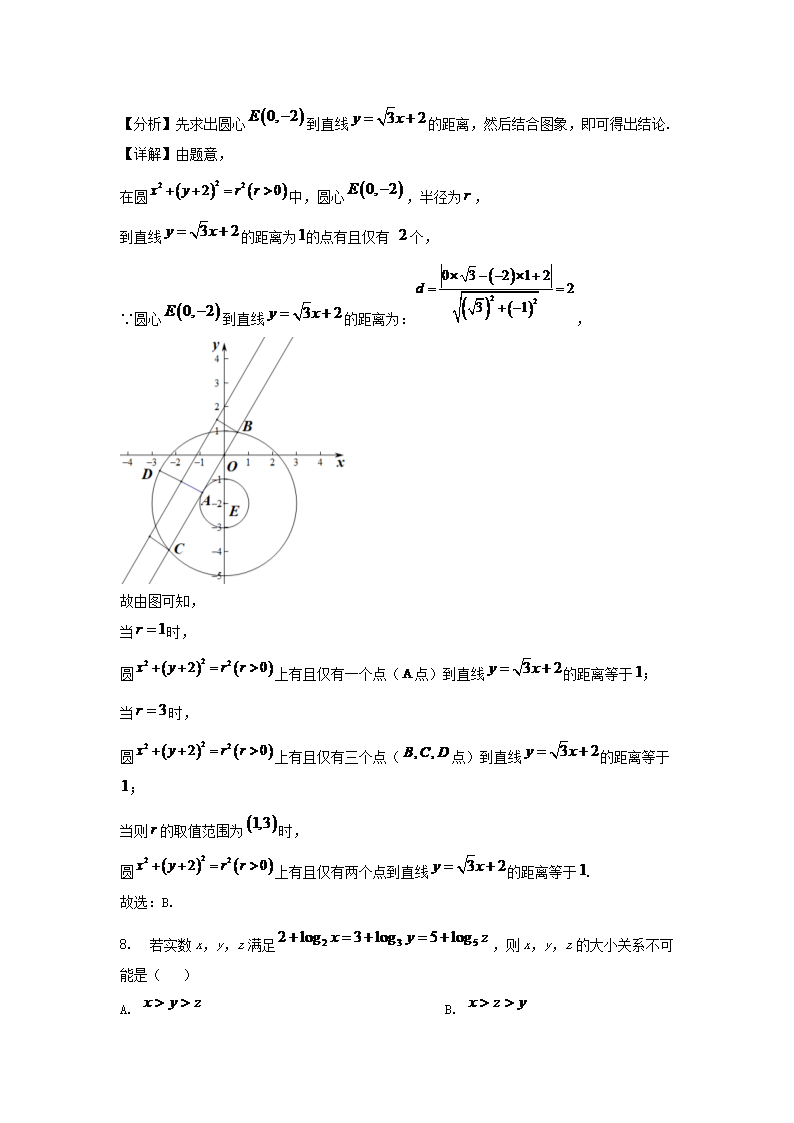 【分析】先求出圆心E(0,−2)到直线y=√3x+2的距离，然后结合图象，即可得出结论.
【详解】由题意，
在圆x²+(y+2)²=r²(r>0)中，圆心E(0,−2)，半径为r，
到直线y=√3x+2的距离为1的点有且仅有 2个，
∵圆心E(0,−2)到直线y=√3x+2的距离为：d=|0×√3−(−2)×1+2|/√((√3)²+(−1)²)=2，
y
4
3
2
1
B
−4 −3 −2 −1 O 1 2 3 4 x
D
−1
A
−2
E
−3
C
−4
−5
故由图可知，
当r=1时，
圆x²+(y+2)²=r²(r>0)上有且仅有一个点（A点）到直线y=√3x+2的距离等于1；
当r=3时，
圆x²+(y+2)²=r²(r>0)上有且仅有三个点（B,C,D点）到直线y=√3x+2的距离等于
1；
当则r的取值范围为(1,3)时，
圆x²+(y+2)²=r²(r>0)上有且仅有两个点到直线y=√3x+2的距离等于1.
故选：B.
8. 若实数x，y，z满足2+log₂x=3+log₃y=5+log₅z，则x，y，z的大小关系不可
能是（ ）
A. x>y>z B. x>z>y